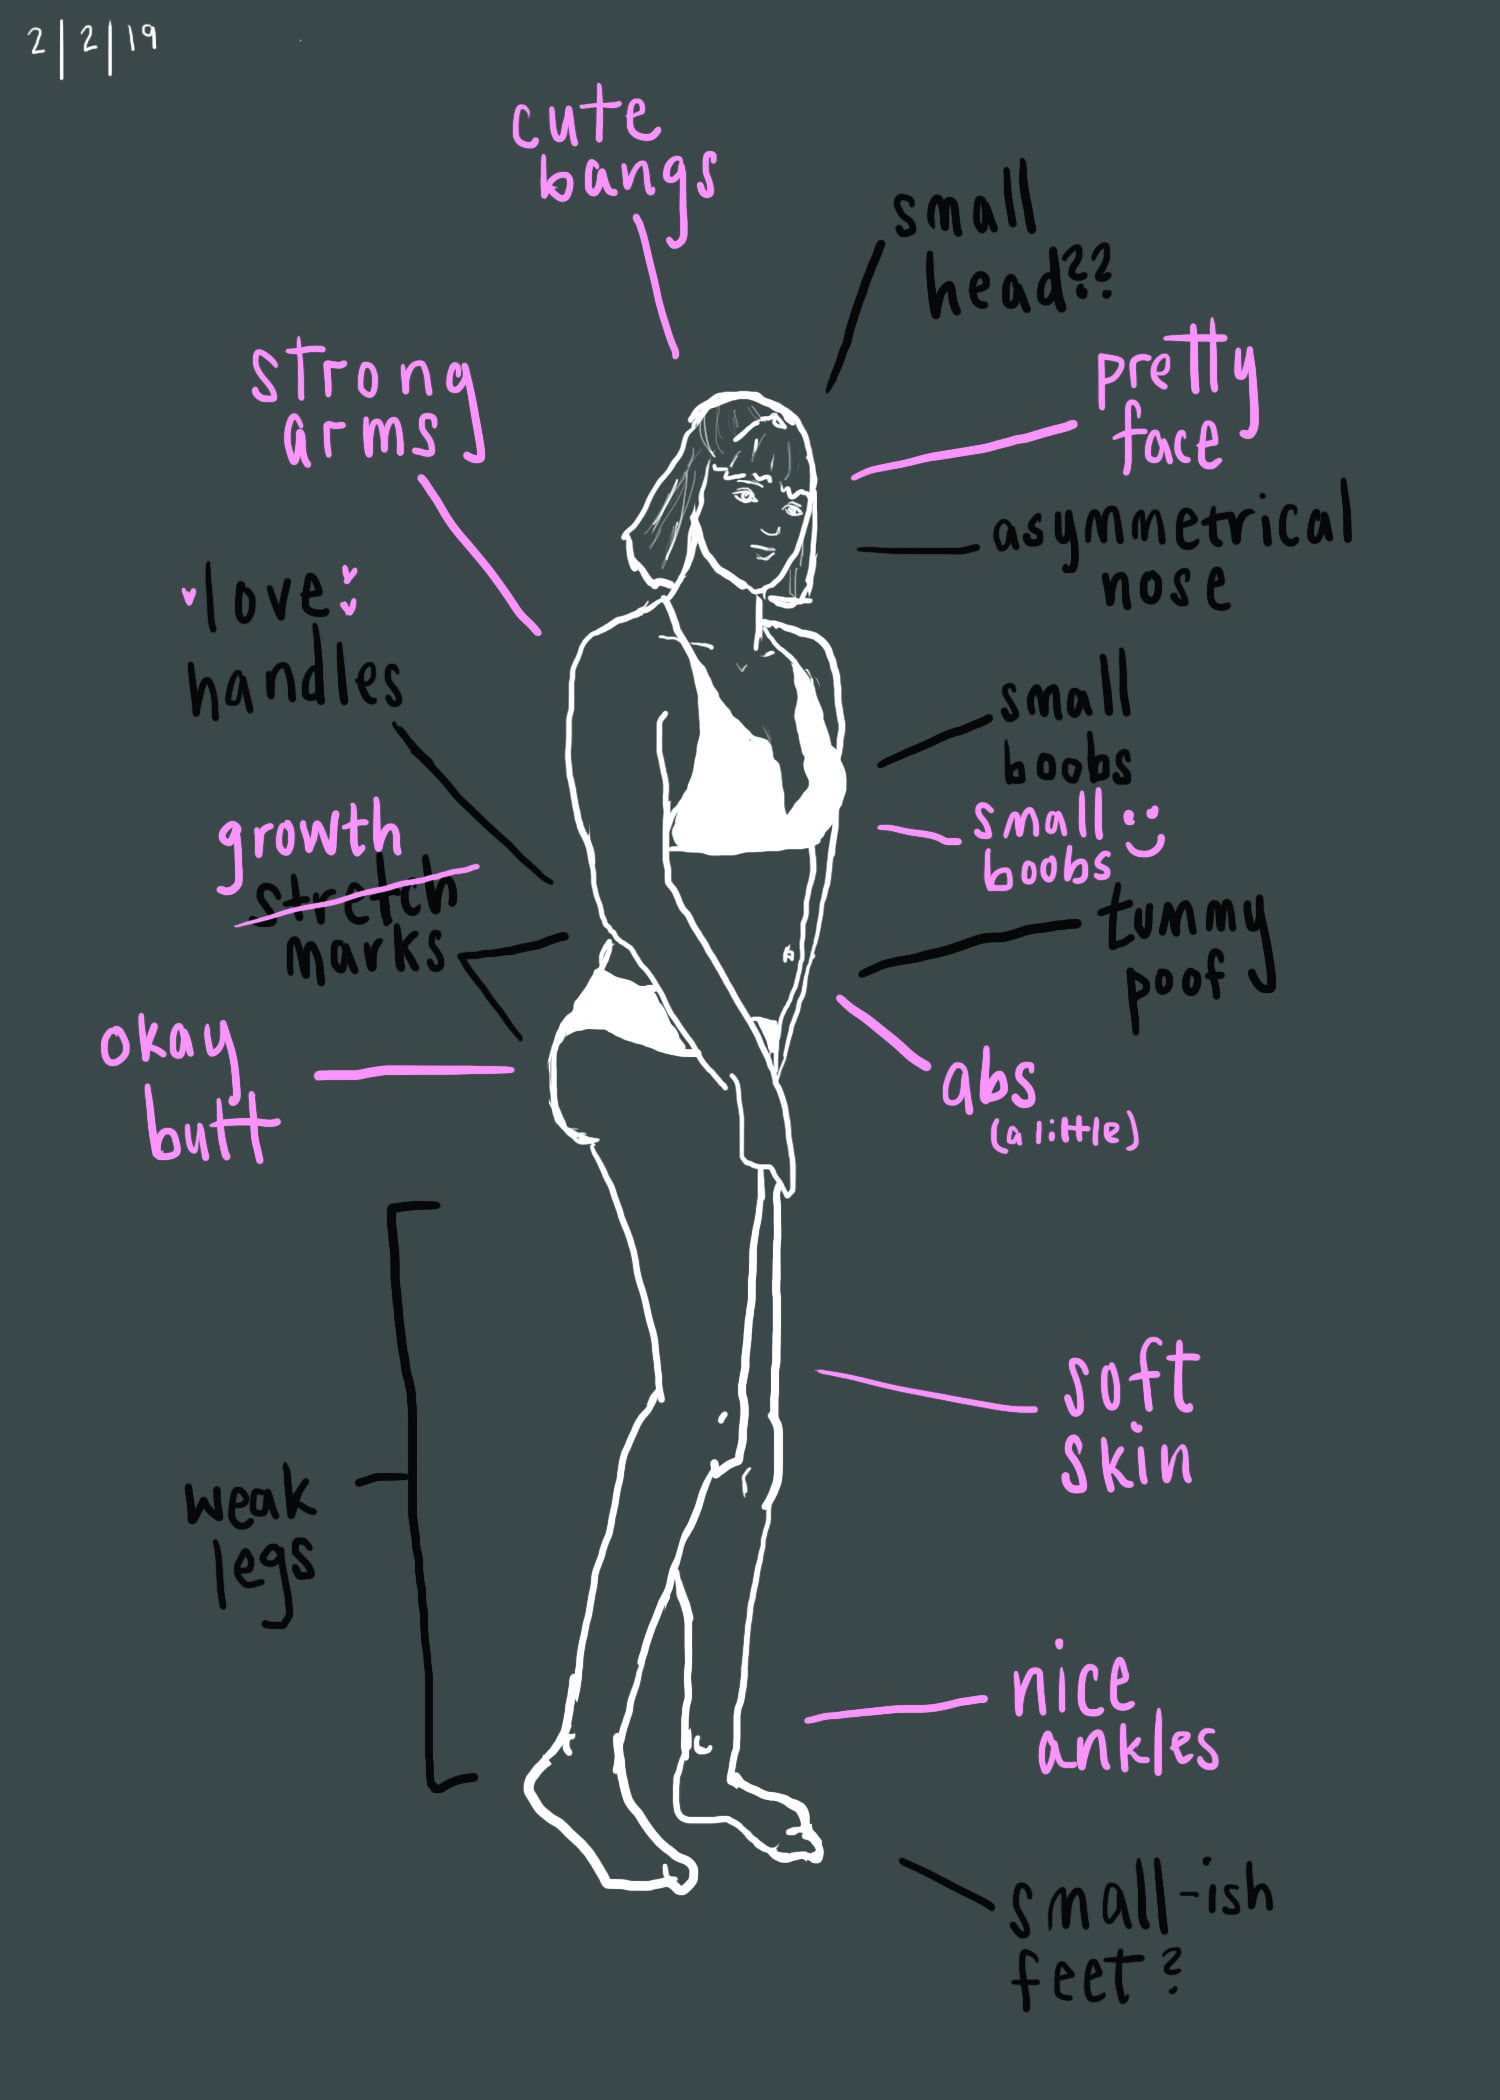 2|2|19
cute
bangs
small
head??
strong
arms
pretty
face
asymmetrical
nose
love
handles
small
boobs
small
boobs
growth
stretch
marks
tummy
poof
okay
butt
abs
(a little)
soft
skin
weak
legs
nice
ankles
small-ish
feet?